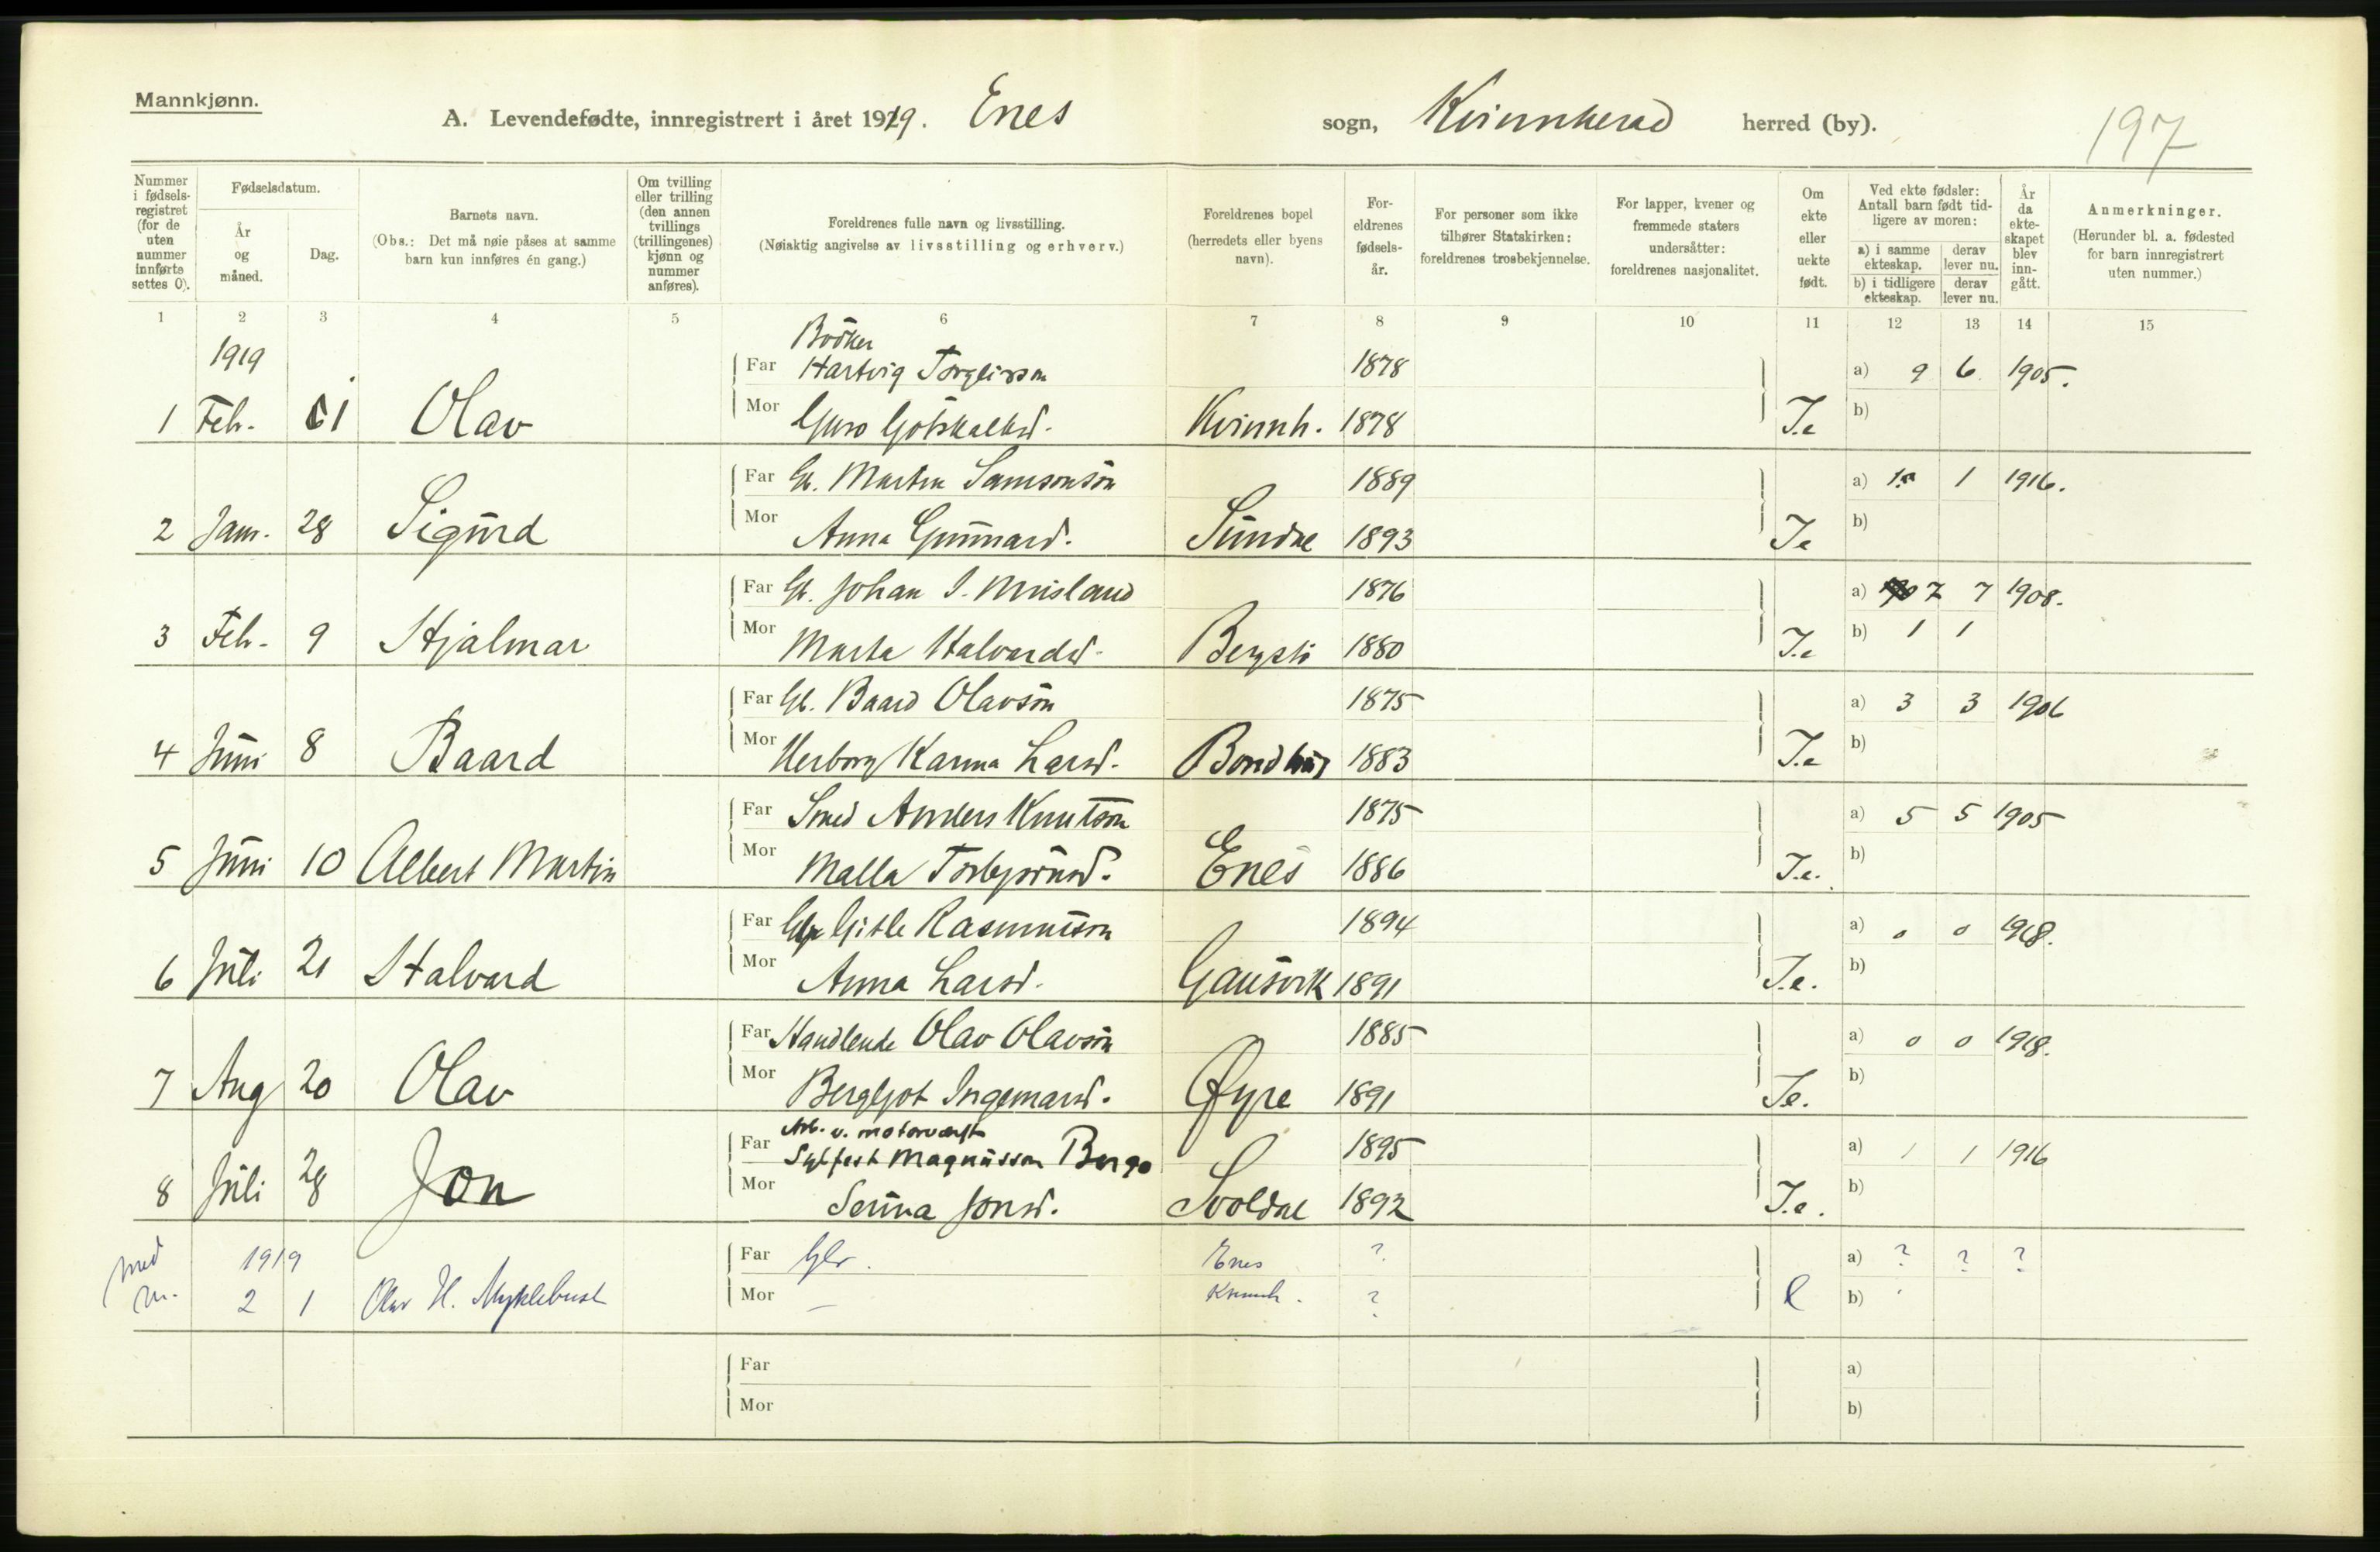 Mannkjønn.
A. Levendefødte, innregistrert i året 1919. Enes sogn, Kvinnherad herred (by).
197
Nummer i fødselsregistret (for de uten nummer innførte settes 0).
Fødselsdatum.
År og måned.
Dag.
Barnets navn.
(Obs.: Det må nøie påses at samme barn kun innføres én gang.)
Om tvilling eller trilling (den annen tvillings (trillingenes) kjønn og nummer anføres).
Foreldrenes fulle navn og livsstilling.
(Nøiaktig angivelse av livsstilling og erhverv.)
Foreldrenes bopel (herredets eller byens navn).
Foreldrenes fødselsår.
For personer som ikke tilhører Statskirken: foreldrenes trosbekjennelse.
For lapper, kvener og fremmede staters undersåtter: foreldrenes nasjonalitet.
Om ekte eller uekte født.
Ved ekte fødsler: Antall barn født tidligere av moren:
a) i samme ekteskap. derav lever nu.
b) i tidligere ekteskap. derav lever nu.
År da ekteskapet blev inngått.
Anmerkninger.
(Herunder bl. a. fødested for barn innregistrert uten nummer.)
1 2 3 4 5 6 7 8 9 10 11 12 13 14 15
1919 Bödker
Far Hartvig 1878 a) 9 6 1905.
1 Feb. 1 Olav Mor Guro Götskalksd. Kvinnh. 1878 I.e b)
Far Gb. Martin Samsonsön 1889 a) 1 1 1916.
2 Jan. 28 Sigurd Mor Anna Gunnarsd. Sundal 1893 I.e b)
Far Gb. Johan I. 1876 a) 7 7 1908.
3 Feb. 9 Hjalmar Mor Marta Halvardsd. 1880 I.e b) 1 1
Far Gb. Baard Olavsön 1875 a) 3 3 1906
4 Juni 8 Baard Mor Herborg Karina Larsd. Bondhus 1883 I.e b)
Far Smed Anders Knutson 1875 a) 5 5 1905
5 Juni 10 Albert Martin Mor Malla Torbjörnsd. Enes 1886 I.e. b)
Far Gisle Rasmusson 1894 a) 0 0 1918.
6 Juli 21 Halvard Mor Anna Larsd. Gausvik 1891 I.e. b)
Far Handlende Olav Olavsön 1885 a) 0 0 1918.
7 Aug 20 Olav Mor Bergljot Ingemarsd. Øyre 1891 I.e. b)
Arb. v. motorværkst
Far Sylfest Magnusson Berge 1895 a) 1 1 1916
8 Juli 28 Jon Mor Serina Jonsd. Svoldal 1892 I.e. b)
med 1919 Far Gbr. Enes ? a) ? ? ?
m. 2 1 Olav H. Myklebust Mor — Kvinnh. ? e b)
Far a)
Mor b)